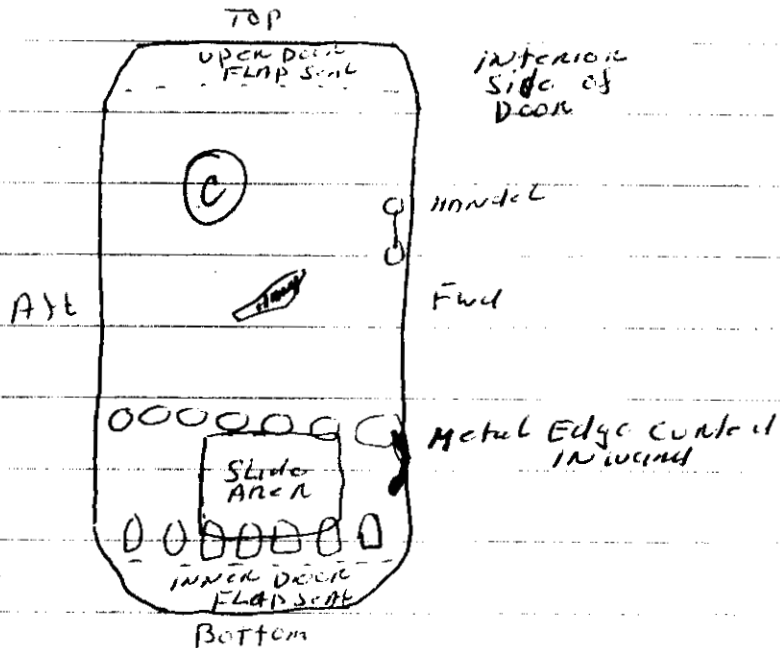 Top
UPER DOOR
FLAP SEAL
interior
Side of
Door
C
HANDEL
Aft
Fwd
Metal Edge Curled
INWARD
Slide
AREA
INNER DOOR
FLAP SEAL
Bottom